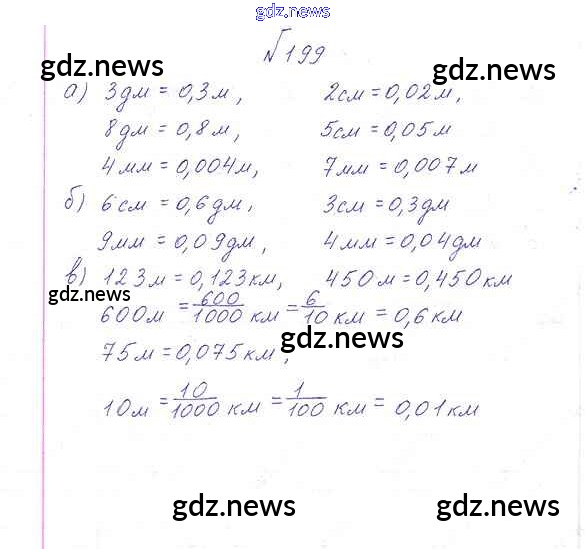 gdz.news
№199
gdz.news gdz.news
а) 3дм = 0,3м, 2см = 0,02м,
8дм = 0,8м, 5см = 0,05м
4мм = 0,004м, 7мм = 0,007м
б) 6см = 0,6дм, 3см = 0,3дм
9мм = 0,09дм, 4мм = 0,04дм
в) 123м = 0,123км, 450м = 0,450км
gdz.news
600м = 600/1000 км = 6/10 км = 0,6км
gdz.news
75м = 0,075км,
10м = 10/1000 км = 1/100 км = 0,01км
gdz.news gdz.news